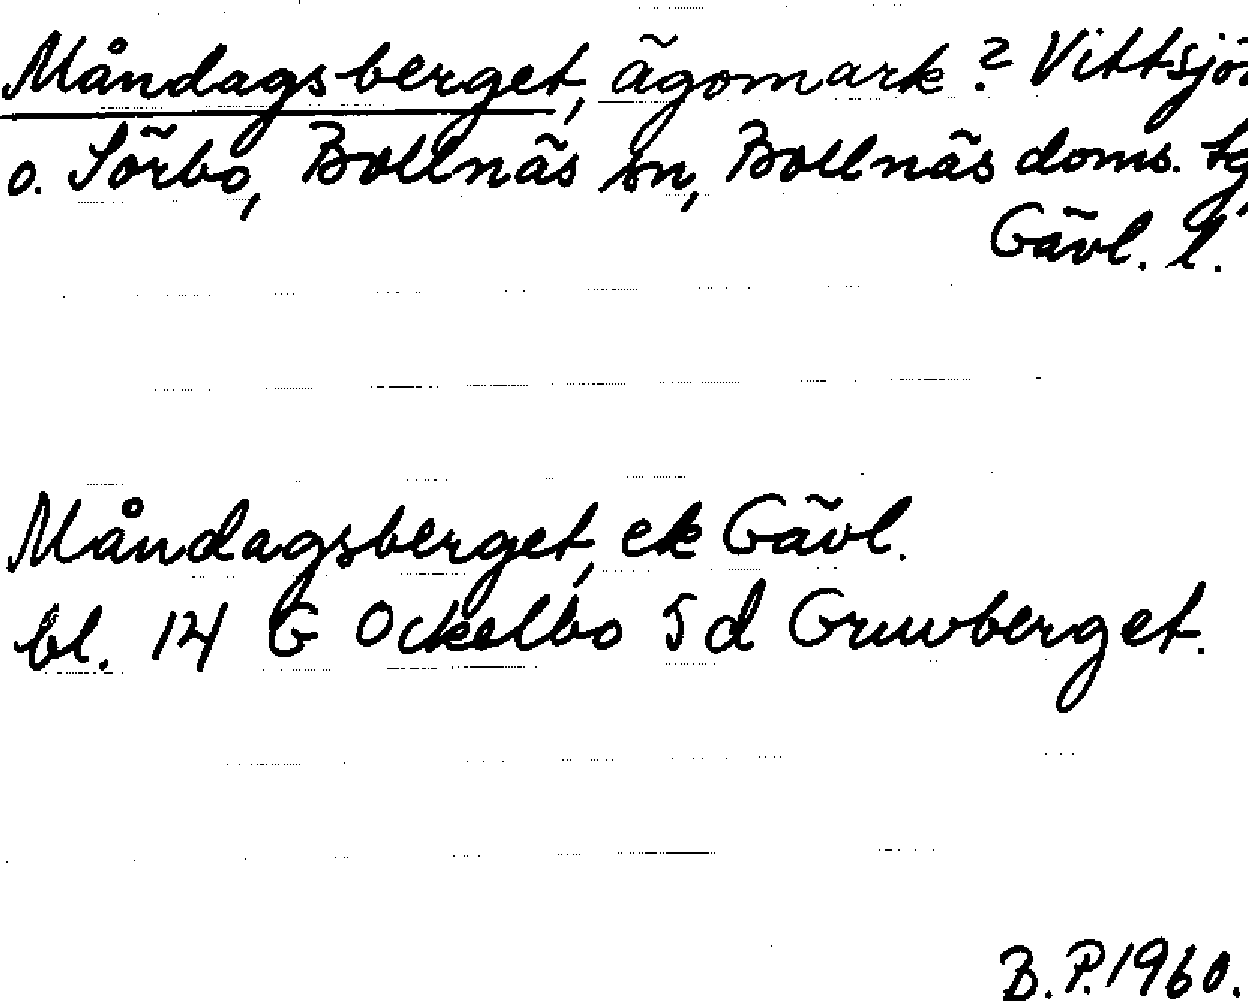 Måndagsberget, ägomark? Vittsjön
o. Sörbo, Bollnäs sn, Bollnäs doms. tg,
Gävl. l.
Måndagsberget, ek Gävl.
bl. 14 G Ockelbo 5 d Gruvberget.
B.P. 1960.